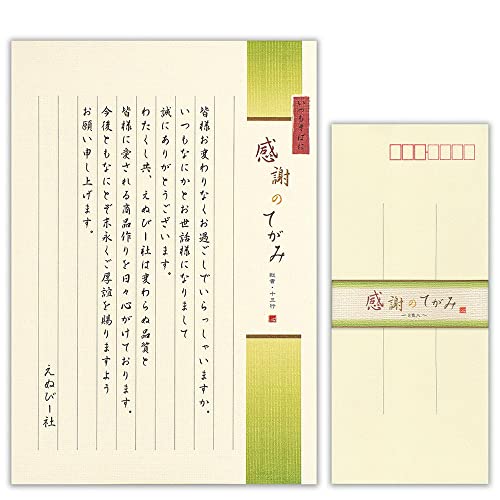 いつもそばに
感謝のてがみ
縦書・十三行
皆様お変わりなくお過ごしでいらっしゃいますか。
いつもなにかとお世話様になりまして
誠にありがとうございます。
わたくし共、えぬびー社は変わらぬ品質と
皆様に愛される商品作りを日々心がけております。
今後ともなにとぞ末永くご厚誼を賜りますよう
お願い申し上げます。
えぬびー社
感謝のてがみ